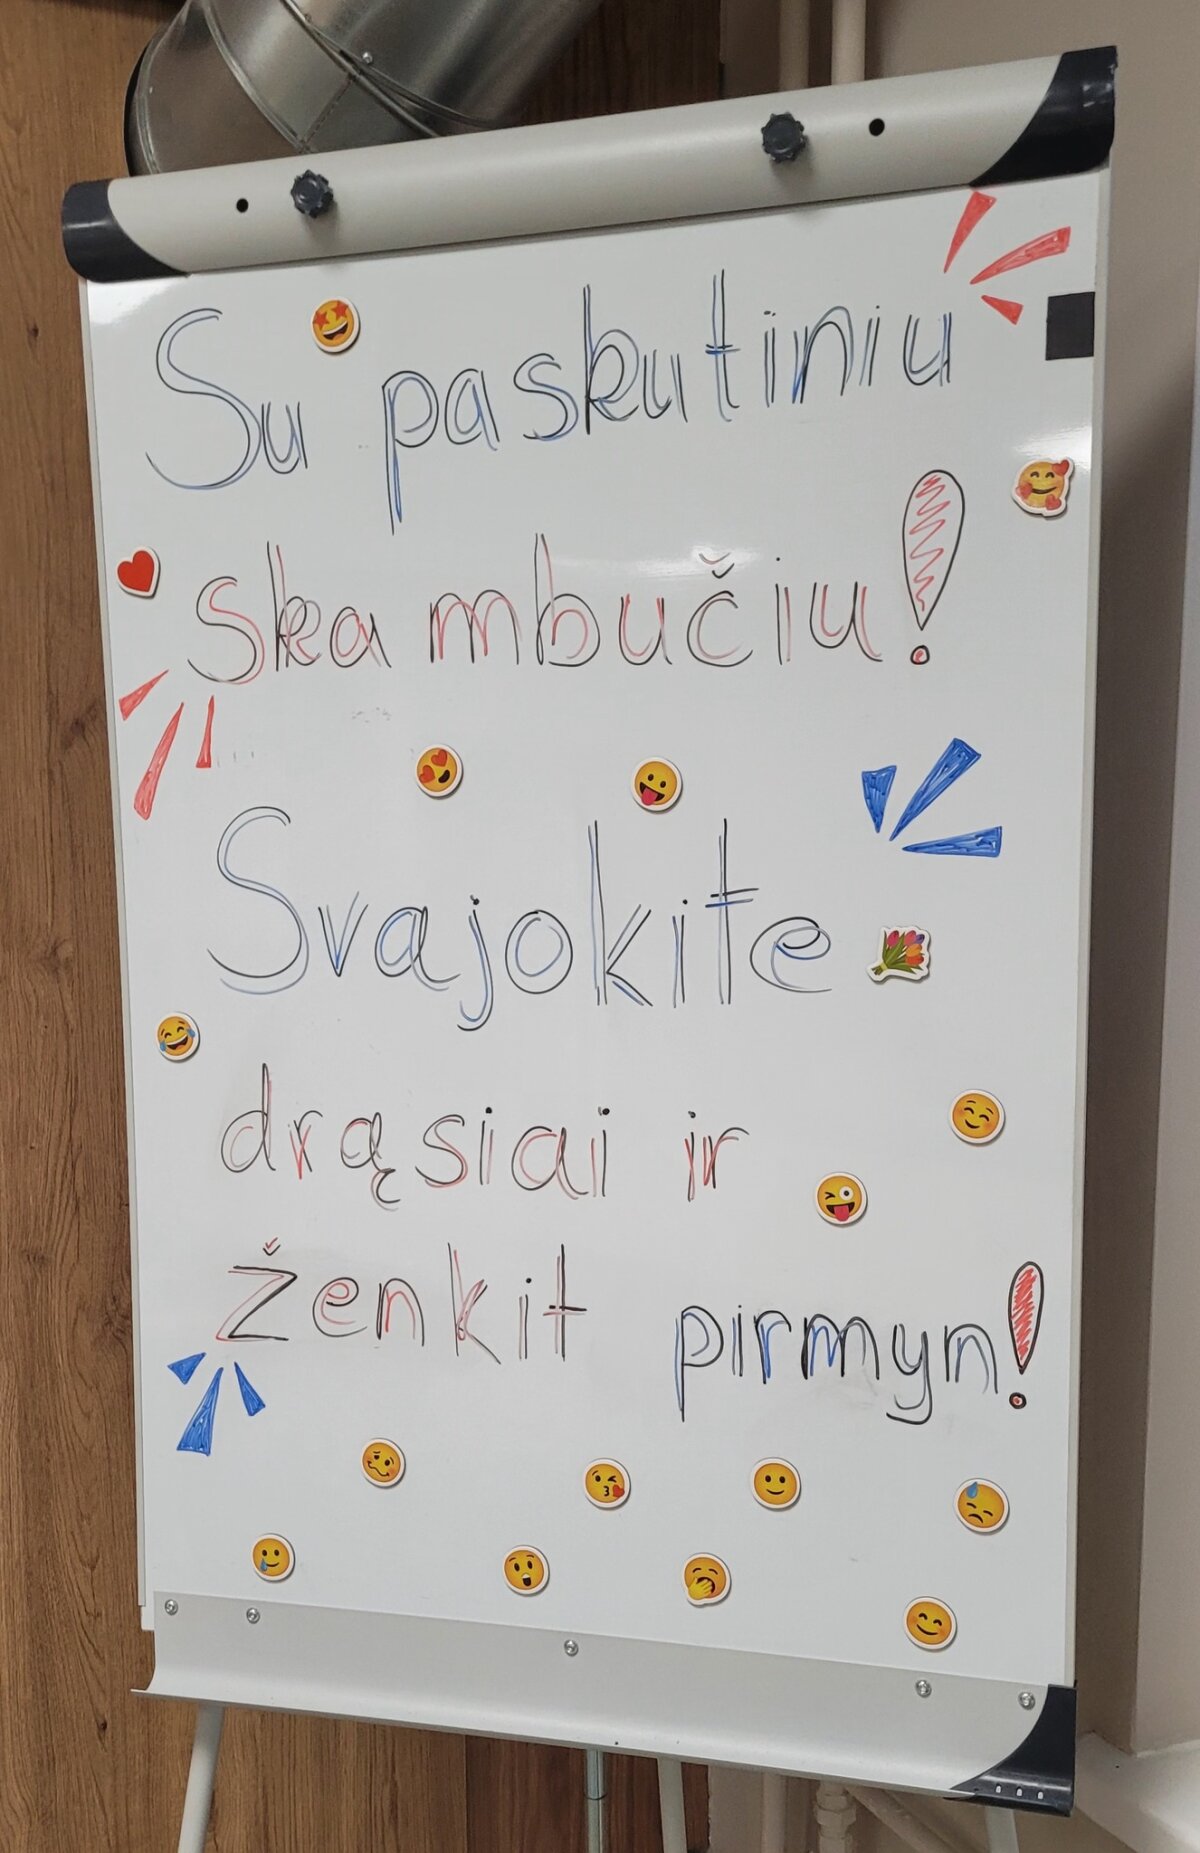 Su paskutiniu
skambučiu!
Svajokite
drąsiai ir
ženkit pirmyn!